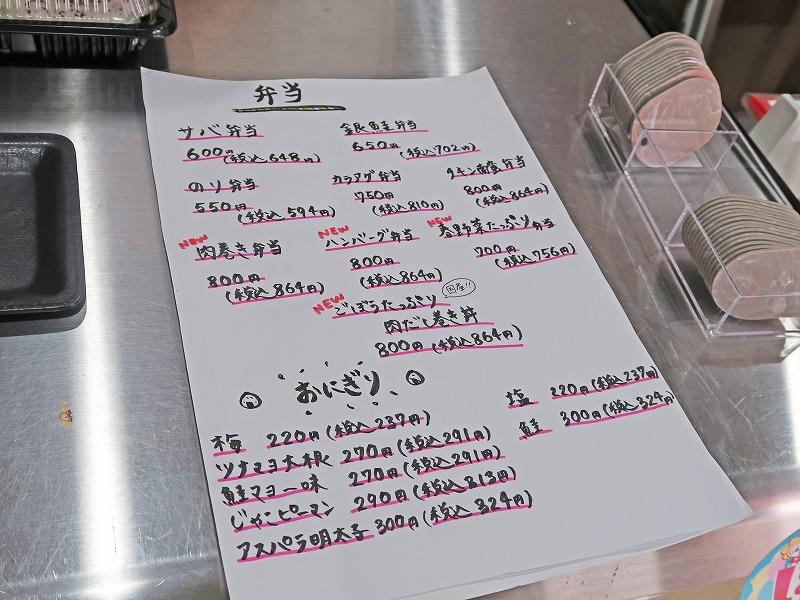 弁当
サバ弁当
600円(税込648円)
銀鮭弁当
650円(税込702円)
のり弁当
550円(税込594円)
カラアゲ弁当
750円(税込810円)
チキン南蛮弁当
800円(税込864円)
NEW 肉巻き弁当
800円(税込864円)
NEW ハンバーグ弁当
800円(税込864円)
NEW 春野菜たっぷり弁当
700円(税込756円)
国産!!
NEW ごぼうたっぷり
肉だし巻き丼
800円(税込864円)
おにぎり
梅 220円(税込237円)
ツナマヨ大根 270円(税込291円)
鮭マヨ一味 270円(税込291円)
じゃこピーマン 290円(税込313円)
アスパラ明太子 300円(税込324円)
塩 220円(税込237円)
鮭 300円(税込324円)